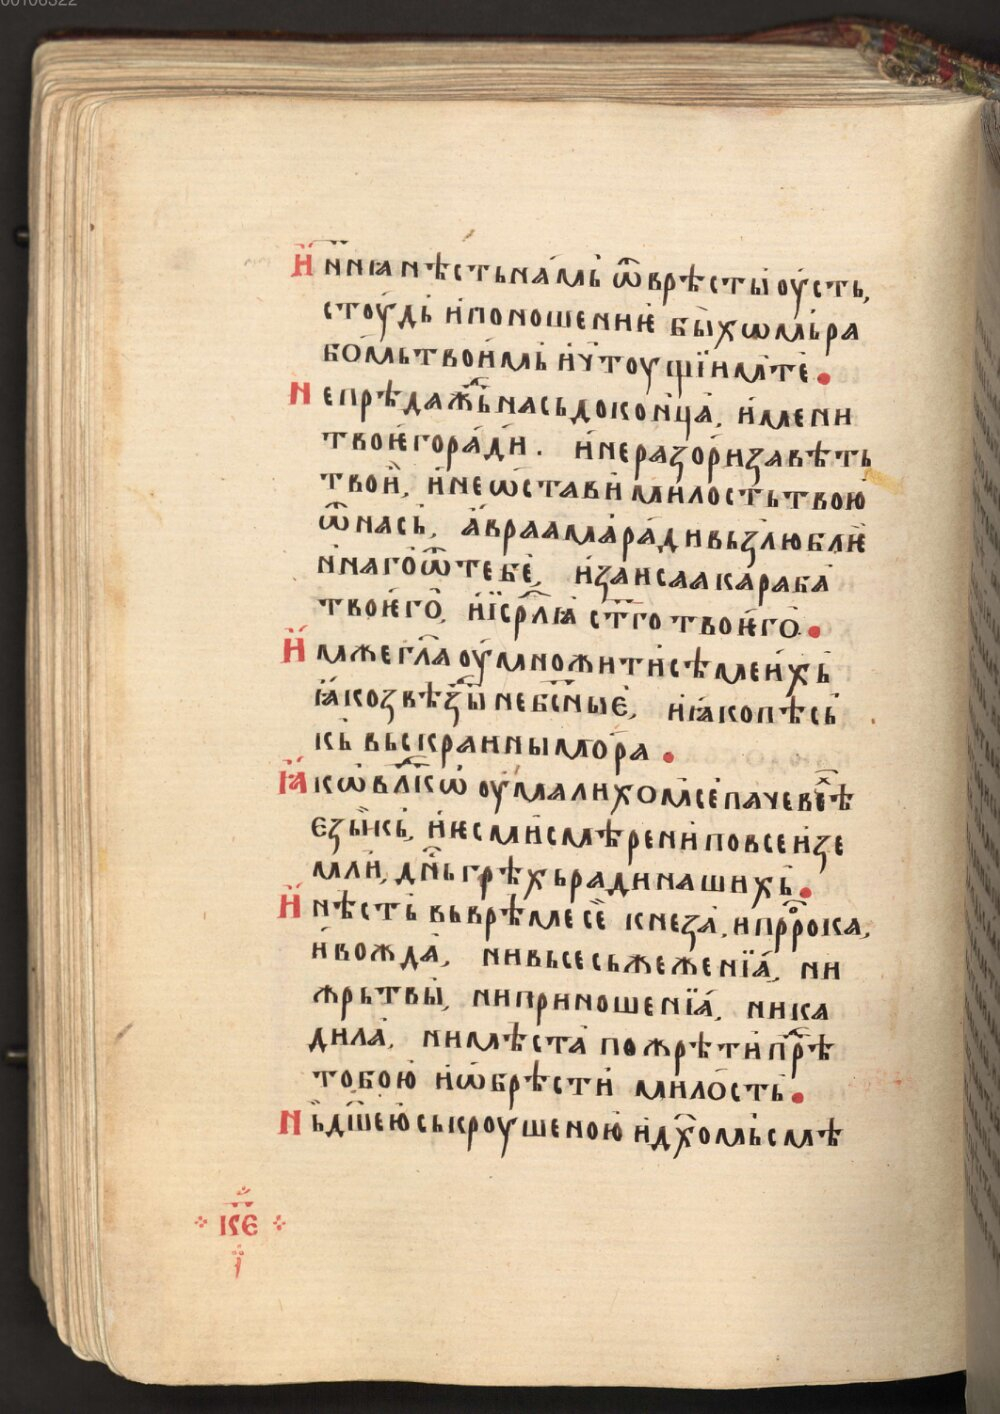 00108322
И҆ нн҃ꙗ нѣсть на́мь ѿврѣсты оу҆сть,
стоу́дь и҆ поношение бы́хѡмь ра
бомь твоимь и҆ чтоущїим те.
Не прѣда́жⷣь нась до конца̀, и҆мени
твоѥго ра́ди. и҆ не разори завѣть
твои, и҆ не ѡ҆стави милость твою
ѿ нась, а҆враама ра́ди вьзлюблѥ
ннаго ѿ тебе, и҆ за исаака раба
твоѥго, и҆ їсрл҃ꙗ ст҃го твоѥго.
И҆мже гл҃а оу҆множити сѣме ихь
ꙗ҆ко звѣзⷣы небⷭ҇ные, и҆ ꙗ҆ко пѣсь
кь вьскраины мо́ра.
Ꙗ҆кѡ влⷣкѡ оу҆малихом се па́че всѣⷯ
езыкь, и҆ ѥсми смѣрени по всеи зе
мли, дн҃ьⷭ грѣхь ради нашихь.
И҆ нѣсть вь врѣме се кнеза, и҆ прⷪ҇рока,
и҆ вожда, ни вьсесьжежениꙗ, ни
жрьтвы, ни приношениꙗ, ни ка
дила, ни мѣста пожрѣти прⷣѣ
тобою и҆ ѡ҆брѣсти милость.
Нь дш҃ею ськроушеною и҆ дх҃омь смѣ
ІЅЄ